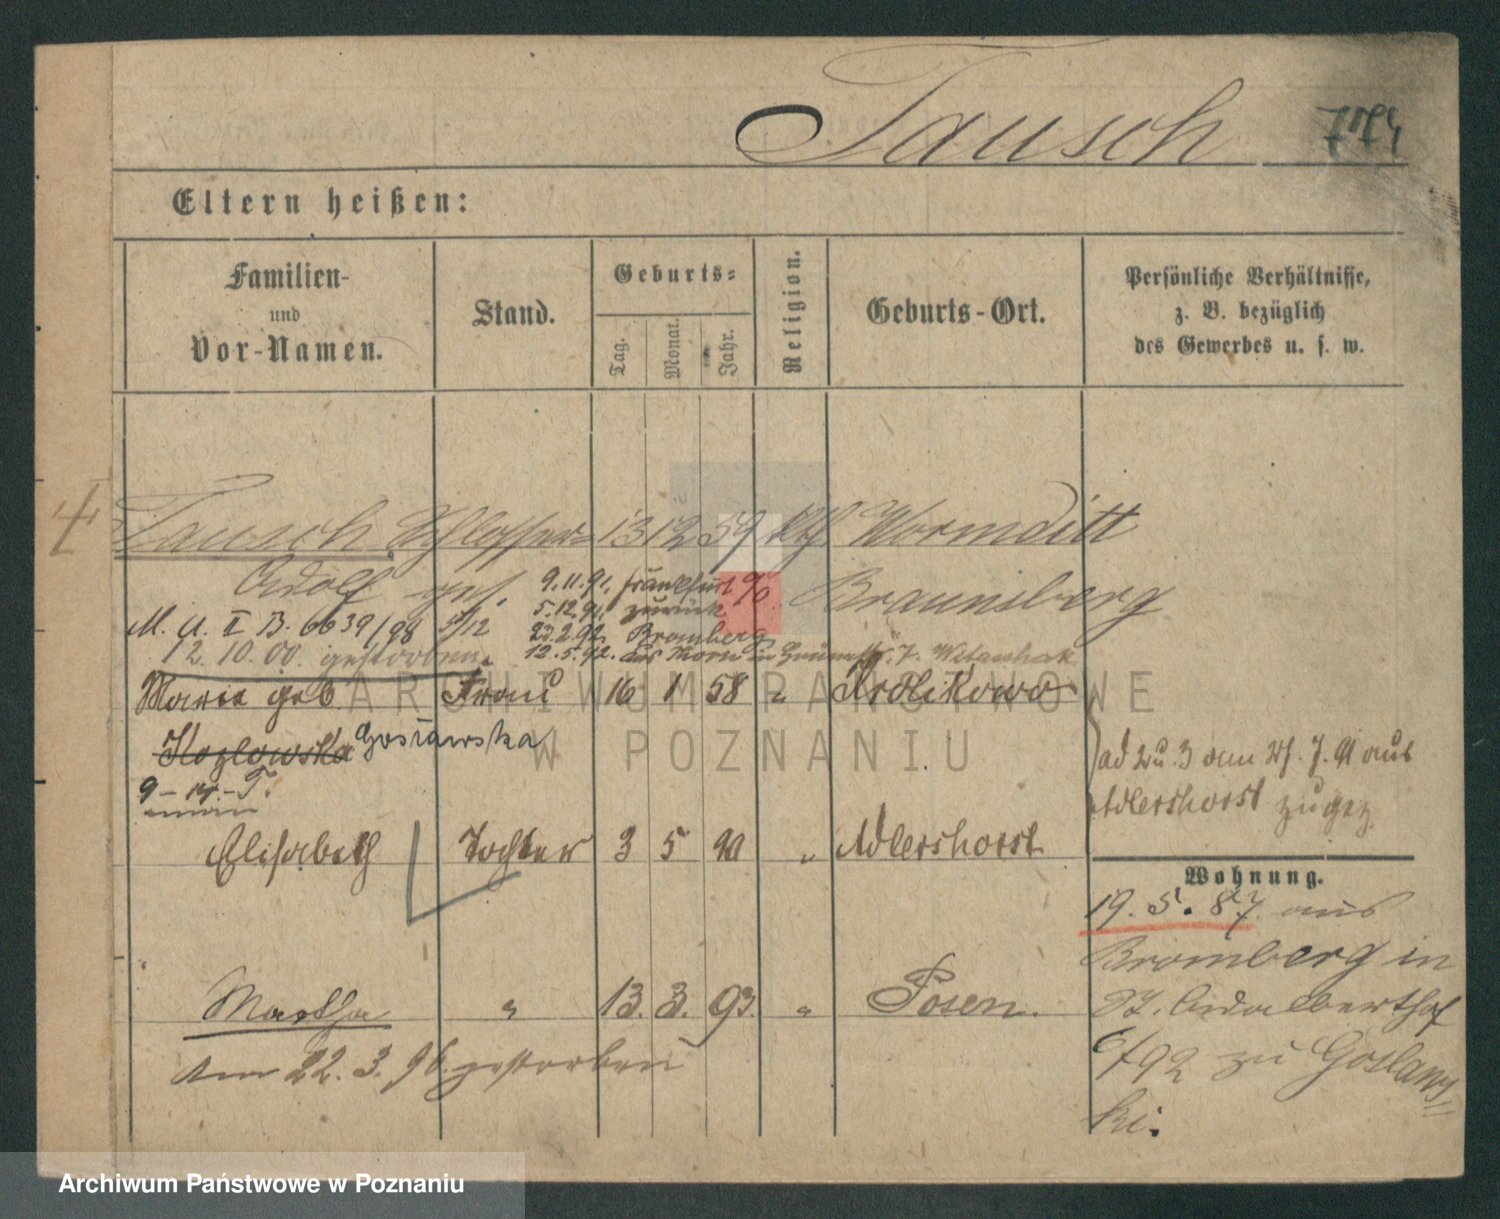 Tausch 774
Eltern heißen:
Familien-
und
Vor-Namen.
Stand.
Geburts-
Tag.
Monat.
Jahr.
Religion.
Geburts-Ort.
Persönliche Verhältnisse,
z. B. bezüglich
des Gewerbes u. s. w.
Tausch Schlosser 13 12 59 kth Wormditt
Adolf ges. 9.11.91. Frankfurt %o Braunsberg
5.12.91. zurück
M. A. II B. 6639/98 5/12 23.2.92. Bromberg
12.10.00. gestorben. 12.5.92.
Marie geb. Frau 16 1 58 " Krolikowo
Kozlowska Gosławska
ad 2 u. 3 am 27.7.91 aus
Adlershorst zugez.
9-14-T.
Elisabeth Tochter 3 5 90 " Adlershorst
Wohnung.
19.5.87 aus
Bromberg in
St. Adalberthof
6/92 zu Goslaws
ki.
Martha " 13. 3. 93. " Posen.
Am 22.3.96 gestorben
ARCHIWUM PAŃSTWOWE
W POZNANIU
Archiwum Państwowe w Poznaniu